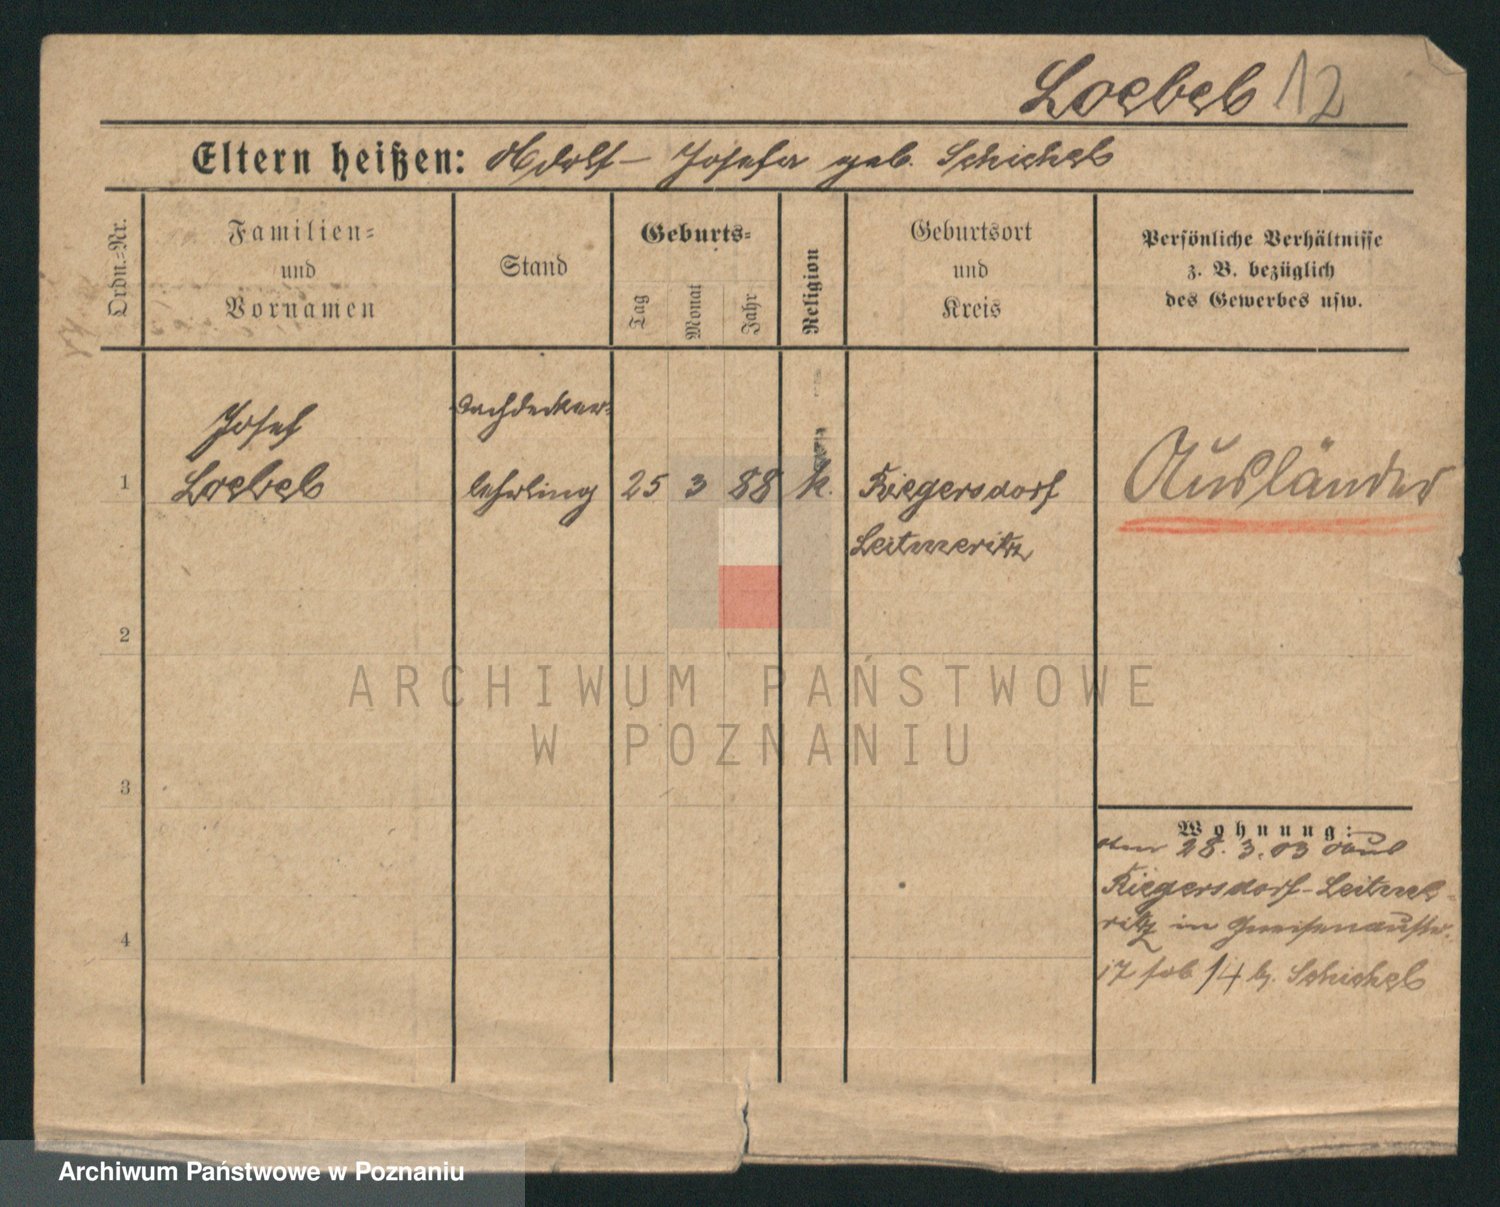 Loebel 12
Eltern heißen: Adolf – Josefa geb. Schickel
Ordn.=Nr.
Familien=
und
Vornamen
Stand
Geburts=
Tag
Monat
Jahr
Religion
Geburtsort
und
Kreis
Persönliche Verhältnisse
z. B. bezüglich
des Gewerbes usw.
Josef
Dachdecker-
1 Loebel lehrling 25 3 88 k. Riegersdorf Ausländer
Leitmeritz
2
3
4
Wohnung:
am 28. 3. 03 aus
Riegersdorf-Leitme-
ritz in Gneisenaustr.
17 14 b. Schickel
ARCHIWUM PAŃSTWOWE
W POZNANIU
Archiwum Państwowe w Poznaniu